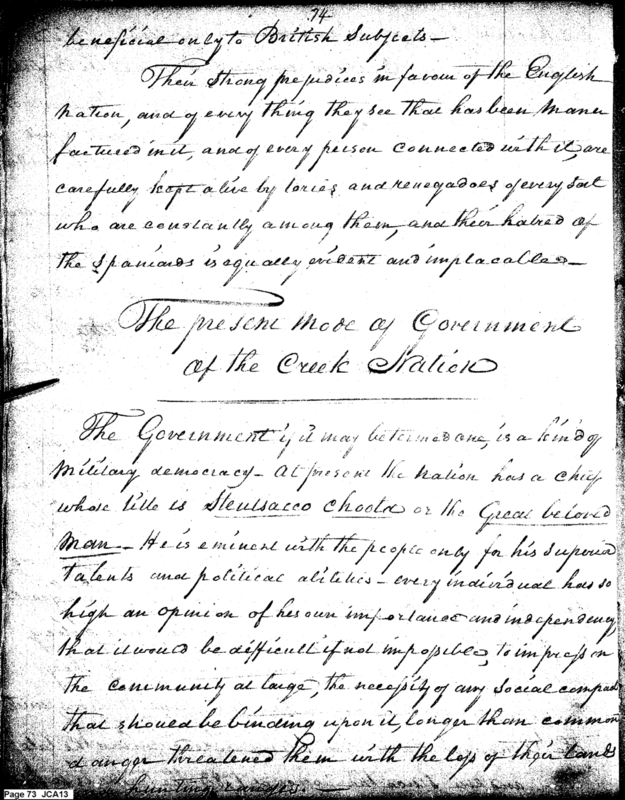 74
beneficial only to British Subjects —
Their strong prejudices in favour of the English
nation, and of every thing they see that has been Manu
factured in it, and of every person connected with it, are
carefully kept alive by tories and renegadoes of every sort
who are constantly among them, and their hatred of
the Spaniards is equally evident and implacable —
The present mode of Government
of the Creek Nation
The Government if it may be termed one, is a kind of
Military democracy — At present the nation has a chief
whose title is Steutsacco Choota or the Great beloved
Man — He is eminent with the people only for his superior
talents and political abilities — every individual has so
high an opinion of his own importance and independency,
that it would be difficult if not impossible, to impress on
the community at large, the necessity of any social compact
that should be binding upon it, longer than common
danger threatened them with the loss of their lands
hunting
Page 73 JCA13